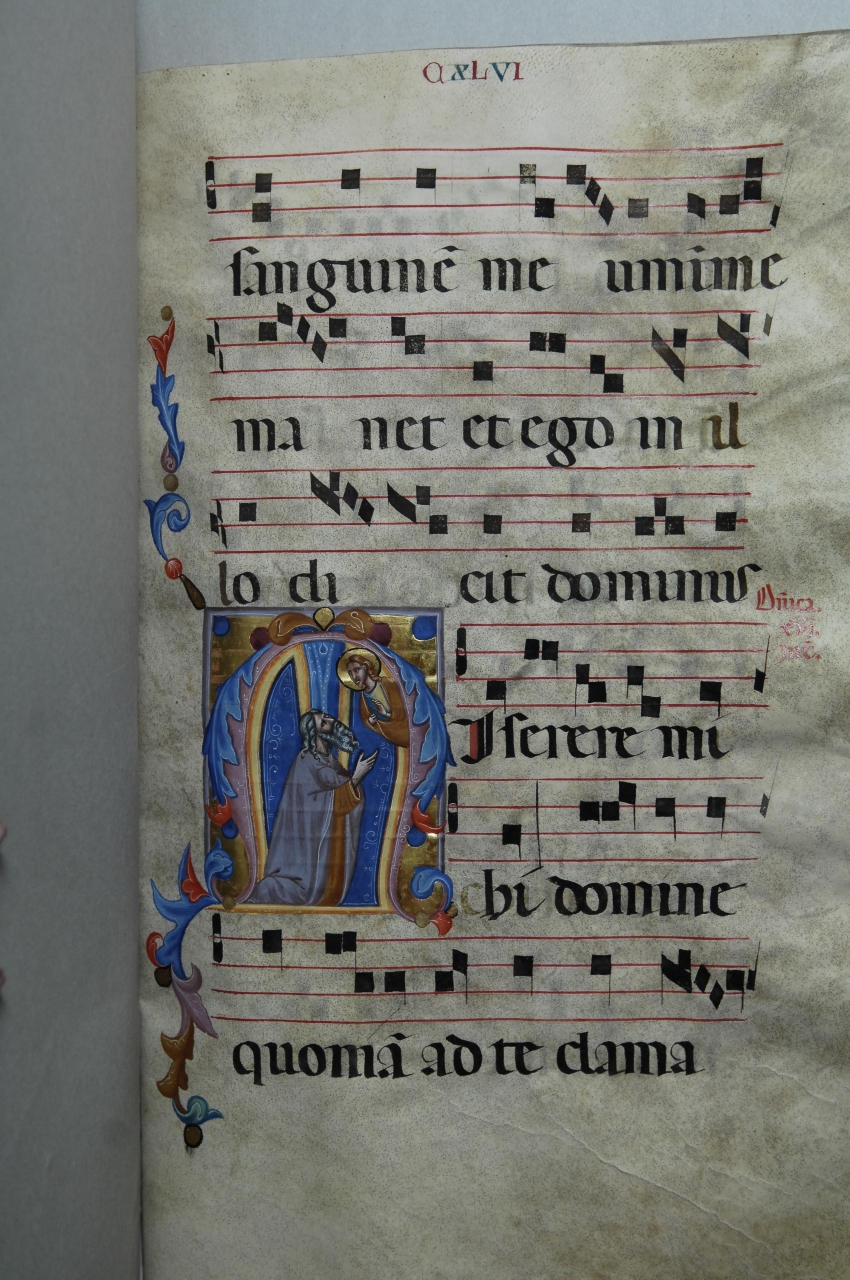 CXLVI
sanguinē me umī me
ma net et ego in il
lo di cit dominus
Dñica.
Miserere mi
chi domine
quoniā ad te clama